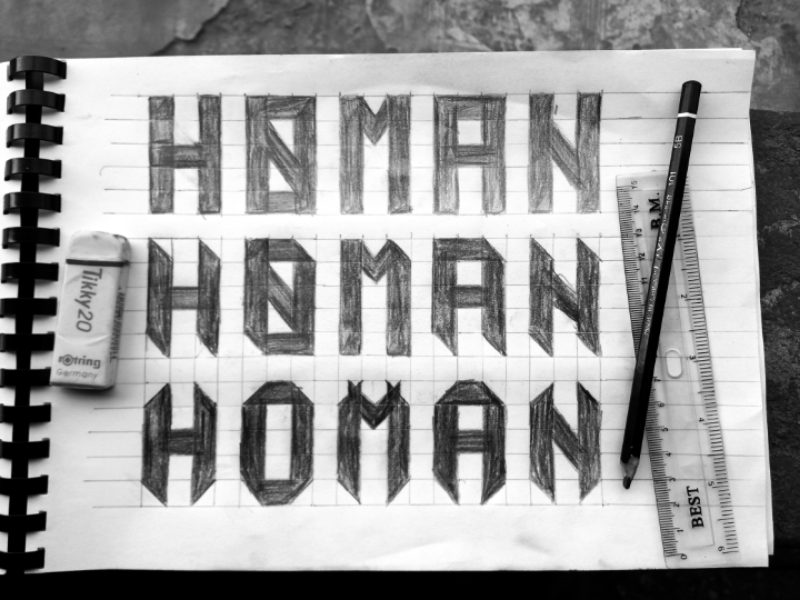 HOMAN
HOMAN
HOMAN
Tikky20
rotring
Germany
5B
101
B.M.
BEST